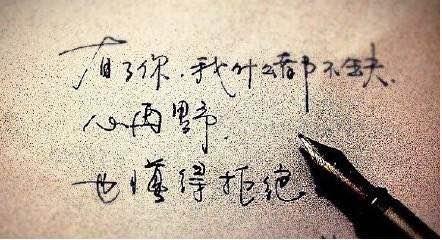 有了你,我什么都不缺.
心再野,
也懂得拒绝